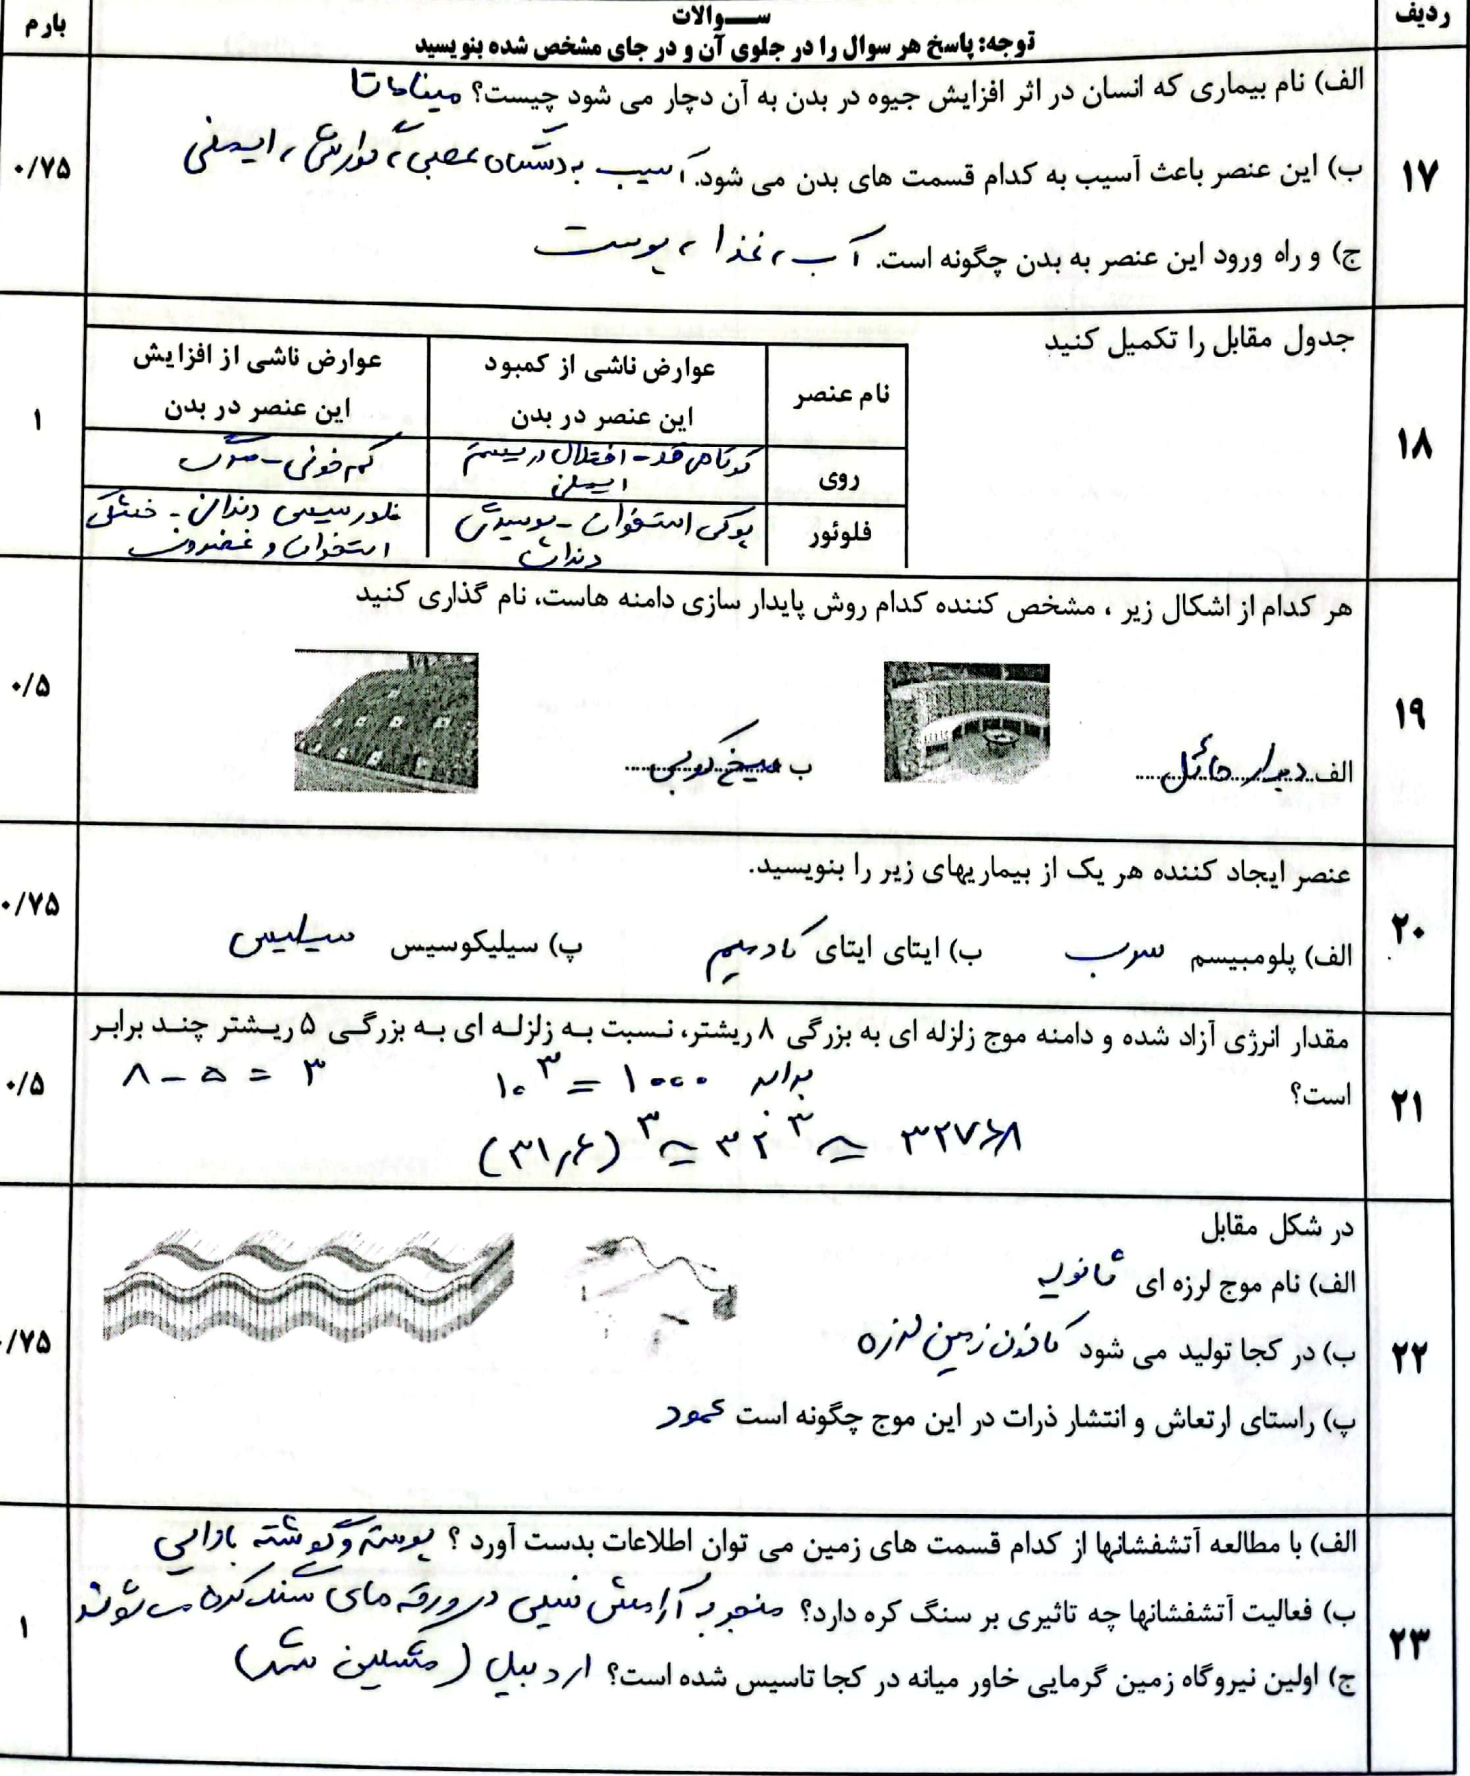 ردیف
ســـوالات
توجه: پاسخ هر سوال را در جلوی آن و در جای مشخص شده بنویسید
بارم
۱۷
الف) نام بیماری که انسان در اثر افزایش جیوه در بدن به آن دچار می شود چیست؟ میناماتا
ب) این عنصر باعث آسیب به کدام قسمت های بدن می شود. آسیب به دستگاه عصبی، گوارشی، ایمنی
ج) و راه ورود این عنصر به بدن چگونه است. آب، غذا، پوست
۰/۷۵
۱۸
جدول مقابل را تکمیل کنید
نام عنصر
عوارض ناشی از کمبود
این عنصر در بدن
عوارض ناشی از افزایش
این عنصر در بدن
روی
کوتاهی قد - اختلال در سیستم
ایمنی
کم خونی - مرگ
فلوئور
پوکی استخوان - پوسیدگی
دندان
فلورسیسی دندان - خشکی
استخوان و غضروف
۱
۱۹
هر کدام از اشکال زیر ، مشخص کننده کدام روش پایدار سازی دامنه هاست، نام گذاری کنید
الف دیوار حائل
ب میخ کوبی
۰/۵
۲۰
عنصر ایجاد کننده هر یک از بیماریهای زیر را بنویسید.
الف) پلومبیسم سرب ب) ایتای ایتای کادمیم پ) سیلیکوسیس سیلیس
۰/۷۵
۲۱
مقدار انرژی آزاد شده و دامنه موج زلزله ای به بزرگی ۸ ریشتر، نسبت به زلزله ای به بزرگی ۵ ریشتر چند برابر
است؟
۸ - ۵ = ۳
۱۰^۳ = ۱۰۰۰ برابر
(۳۱,۶)^۳ ≃ ۳۲^۳ ≃ ۳۲۷۶۸
۰/۵
۲۲
در شکل مقابل
الف) نام موج لرزه ای ثانویه
ب) در کجا تولید می شود کانون زمین لرزه
پ) راستای ارتعاش و انتشار ذرات در این موج چگونه است عمود
/۷۵
۲۳
الف) با مطالعه آتشفشانها از کدام قسمت های زمین می توان اطلاعات بدست آورد ؟ پوسته و گوشته بالایی
ب) فعالیت آتشفشانها چه تاثیری بر سنگ کره دارد؟ منجر به آرامش نسبی در ورقه های سنگ کره می شوند
ج) اولین نیروگاه زمین گرمایی خاور میانه در کجا تاسیس شده است؟ اردبیل (مشگین شهر)
۱